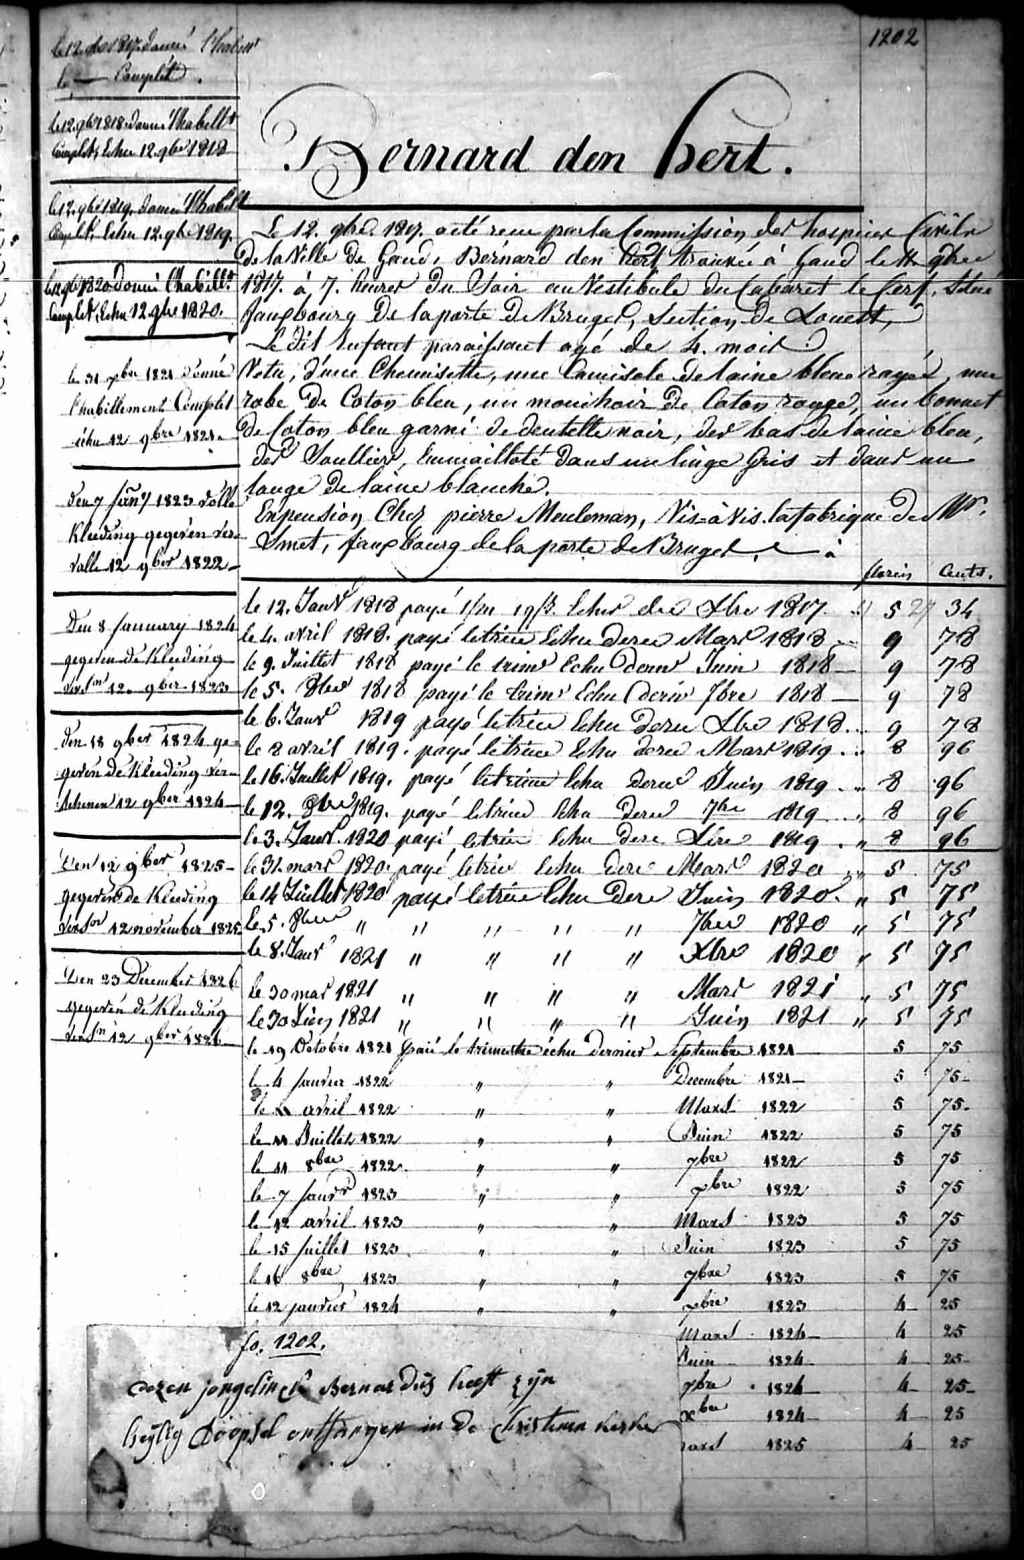 1202
Bernard den hert.
le 12. 1817. donné l'habill
le — Complét.
le 12. 9bre 1818 donné l'habillt
Complet, Echu 12. 9bre 1818
le 12. 9bre 1819. donné l'habillt
Complet, Echu 12. 9bre 1819.
le 12 9bre 1820 donné l'habillt
Complet, Echu 12 9bre 1820.
le 31 1821 donné
l'habillement Complet
échu 12 9bre 1821.
Den 7 Janŷ 1823 volle
Kleeding gegeven ver-
valle 12 9ber 1822
Den 8 January 1824
gegeven de Kleeding
versn 12. 9ber 1823
Den 18 9ber 1824 ge-
gevén de Kleeding ver-
schenen 12 9ber 1824
Den 12 9ber 1825
gegeven de Kleeding
12 november 1825
Den 23 December 1826
gegevén de Kleeding
versn 12 9ber 1826
Le 12. 9bre 1817. a été reçu par la Commission des hospices Civils
de la Ville de Gand, Bernard den hert trouvée à Gand le 11 9bre
1817. à 7. heures du Soir au Vestibule du Cabaret le Cerf, Situé
fauxbourg de la porte de Bruges, Section de Louest,
Le dit Enfant paraissant agé de 4. mois.
Vetu, d'une Chemisette, une Camisole de laine bleue rayée, une
robe de Coton bleu, un mouchoir de Coton rouge, un bonnet
de Coton bleu garni de dentelle noir, des bas de laine bleu,
des Soulliers, Emmailloté dans un linge Gris et dans un
lange de laine blanche.
En pension Chez pierre Meuleman, Vis-à-Vis la fabrique de Mr.
Smet, fauxbourg de la porte de Bruges, à
florin Cents.
le 12. Janvr 1818 payé Echu de Xbre 1817. 5 34
le 4. avril 1818. payé le trim Echu derer Mars 1818 9 78
le 9. Juillet 1818 payé le trimr Echu dernr Juin 1818 9 78
le 5. 8bre 1818 payé le trimr Echu dernr 7bre 1818 9 78
le 6. Janvr 1819 payé le trim Echu derer Xbre 1818 9 78
le 8 avril 1819. payé le trim Echu derer Mars 1819 8 96
le 16. Juillet 1819. payé le trim Echu derer Juin 1819 8 96
le 12. 8bre 1819. payé le trim Echu derer 7bre 1819 8 96
le 3. Janvr 1820 payé le trim Echu dere Xbre 1819 8 96
le 31. mars 1820. payé le trim Echu dere Mars 1820 5 75
le 14 Juillet 1820 payé le trim Echu dere Juin 1820. 5 75
le 5. 8bre " " " " " 7bre 1820 " 5 75
le 8. Janvr 1821 " " " " Xbre 1820 " 5 75
le 30 mar 1821 " " " " Mars 1821 " 5 75
le 30 Juin 1821 " " " " Juin 1821 " 5 75
le 19 Octobre 1821 païé le trimestre échu dernier Septembre 1821 5 75
le 4 janvier 1822 " " Decembre 1821 5 75
le avril 1822 " " Mars 1822 5 75
le 11 Juillet 1822 " " Juin 1822 5 75
le 11 8bre 1822 " " 7bre 1822 5 75
le 7 janvr 1823 " " xbre 1822 5 75
le 12 avril 1823 " " Mars 1823 5 75
le 15 juillet 1823 " " Juin 1823 5 75
le 16 8bre 1823 " " 7bre 1823 5 75
le 12 janvier 1824 " " xbre 1823 4 25
Mars 1824 4 25
Juin 1824 4 25
7bre 1824 4 25
xbre 1824 4 25
mars 1825 4 25
fo. 1202.
dezen jongelinck Bernardus heeft zijn
heylig doopsel ontfangen in de Christenen kerke